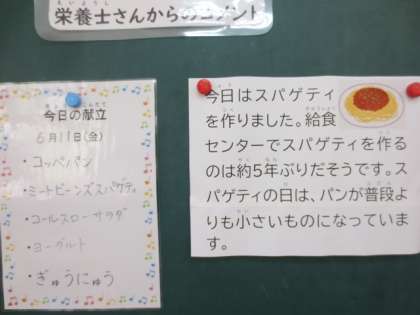 栄養士さんからのコメント
今日の献立
6月11日(金)
・コッペパン
・ミートビーンズスパゲティ
・コールスローサラダ
・ヨーグルト
・ぎゅうにゅう
今日はスパゲティ
を作りました。給食
センターでスパゲティを作る
のは約5年ぶりだそうです。ス
パゲティの日は、パンが普段よ
りも小さいものになっていま
す。